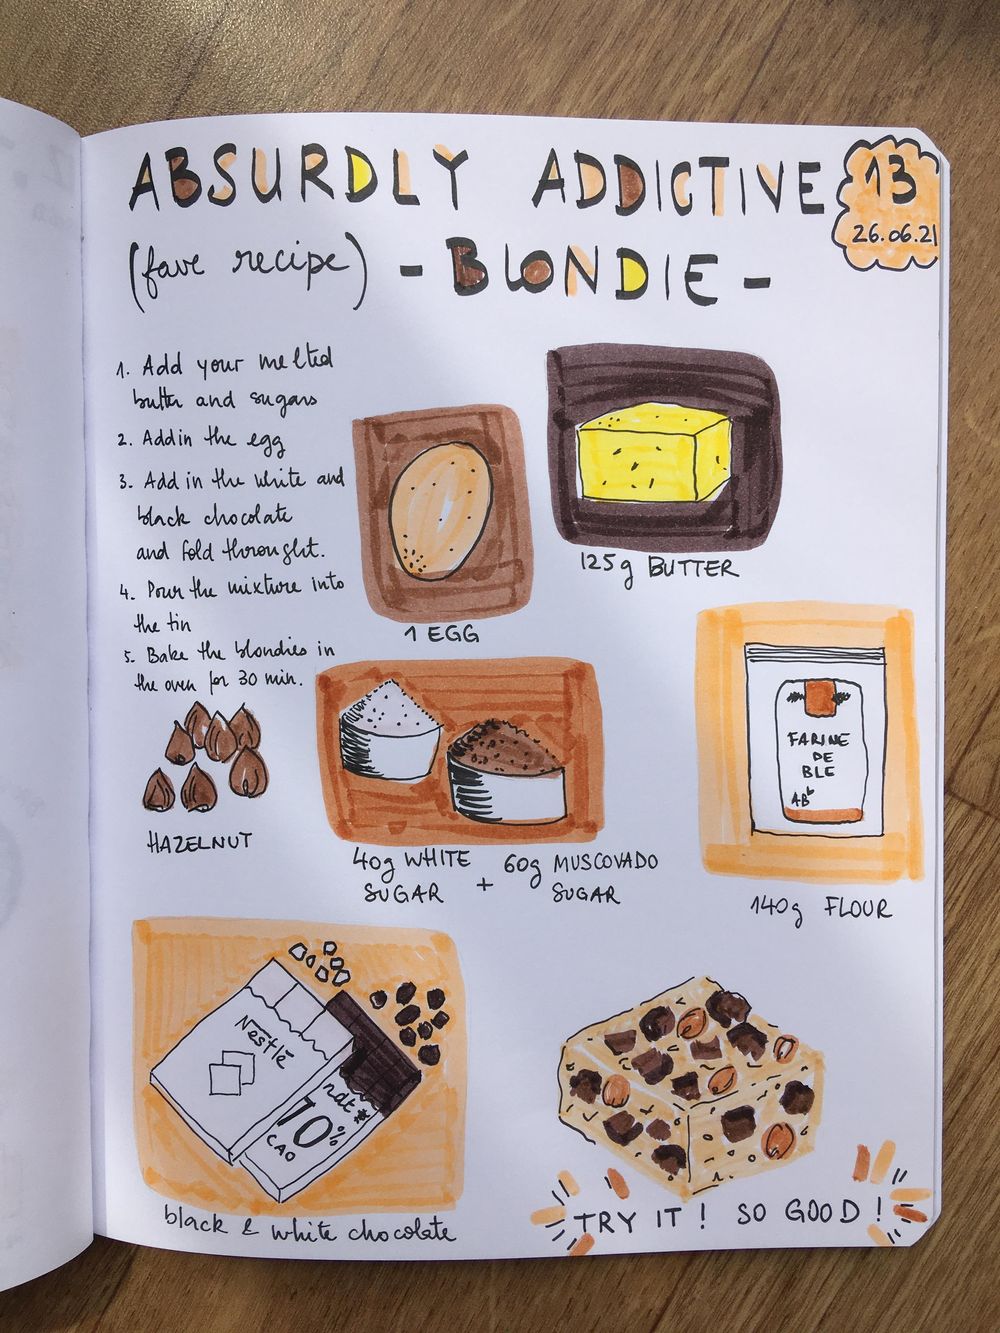 ABSURDLY ADDICTIVE
(fave recipe) - BLONDIE -
13
26.06.21
1. Add your melted
butter and sugars
2. Add in the egg
3. Add in the white and
black chocolate
and fold throught.
4. Pour the mixture into
the tin
5. Bake the blondies in
the oven for 30 min.
1 EGG
125g BUTTER
HAZELNUT
40g WHITE
SUGAR
+
60g MUSCOVADO
SUGAR
FARINE
DE
BLE
AB
140g FLOUR
Nestlé
nat
70%
CAO
black & white chocolate
TRY IT! SO GOOD!